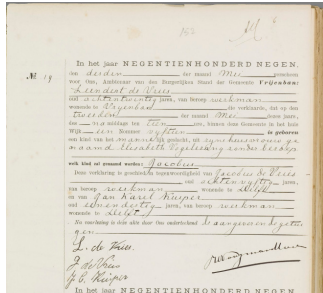 № 19
In het jaar NEGENTIENHONDERD NEGEN,
den derden der maand Mei verscheen
voor Ons, Ambtenaar van den Burgerlijken Stand der Gemeente Vrijenban:
Leendert de Vries
oud achtentwintig jaren, van beroep werkman
wonende te Vrijenban die verklaarde, dat op den
tweeden der maand Mei dezes jaars,
des middags ten één ure, binnen deze Gemeente in het huis
Wijk Nommer vijftien is geboren
een kind van het mannelijk geslacht, uit zijn huisvrouw ge
naamd Elisabeth Vogelezang zonder beroep
welk kind zal genaamd worden: Jacobus
Deze verklaring is geschied in tegenwoordigheid van Jacobus de Vries
oud jaren,
van beroep werkman wonende te Delft
en van Jan Karel Kuiper
oud jaren, van beroep werkman
wonende te Delft
Na voorlezing is deze akte door Ons onderteekend de aangever en de getui
gen
L. de Vries.
J de Vries
J C Kuiper
In het jaar NEGENTIENHONDERD NEGEN